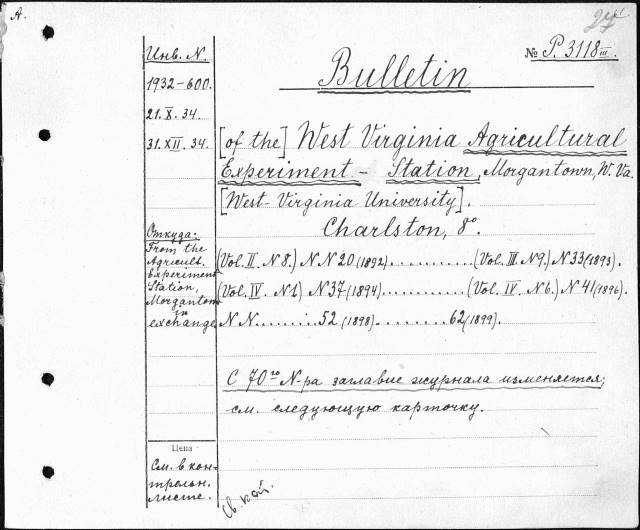 А.
27
Инв. N.
1932-600.
21.X.34.
31.XII.34.
№ P. 3118 III.
Bulletin
[of the] West Virginia Agricultural
Experiment - Station, Morgantown, W. Va.
[West-Virginia University].
Charlston, 8°
Откуда:
From the
Agricult.
Experiment
Station,
Morgantown
in
exchange
(Vol. II N 8.) N N 20 (1892) .......... (Vol. III N 9.) N 33 (1893).
(Vol. IV N 1) N 37 (1894) .......... (Vol. IV. N 6.) N 41 (1896).
N N. ....... 52 (1898) ........ 62 (1899).
С 70го N-ра заглавие журнала изменяется;
см. следующую карточку.
Цена
См. в кон-
трольн.
листе.
Св. кат.